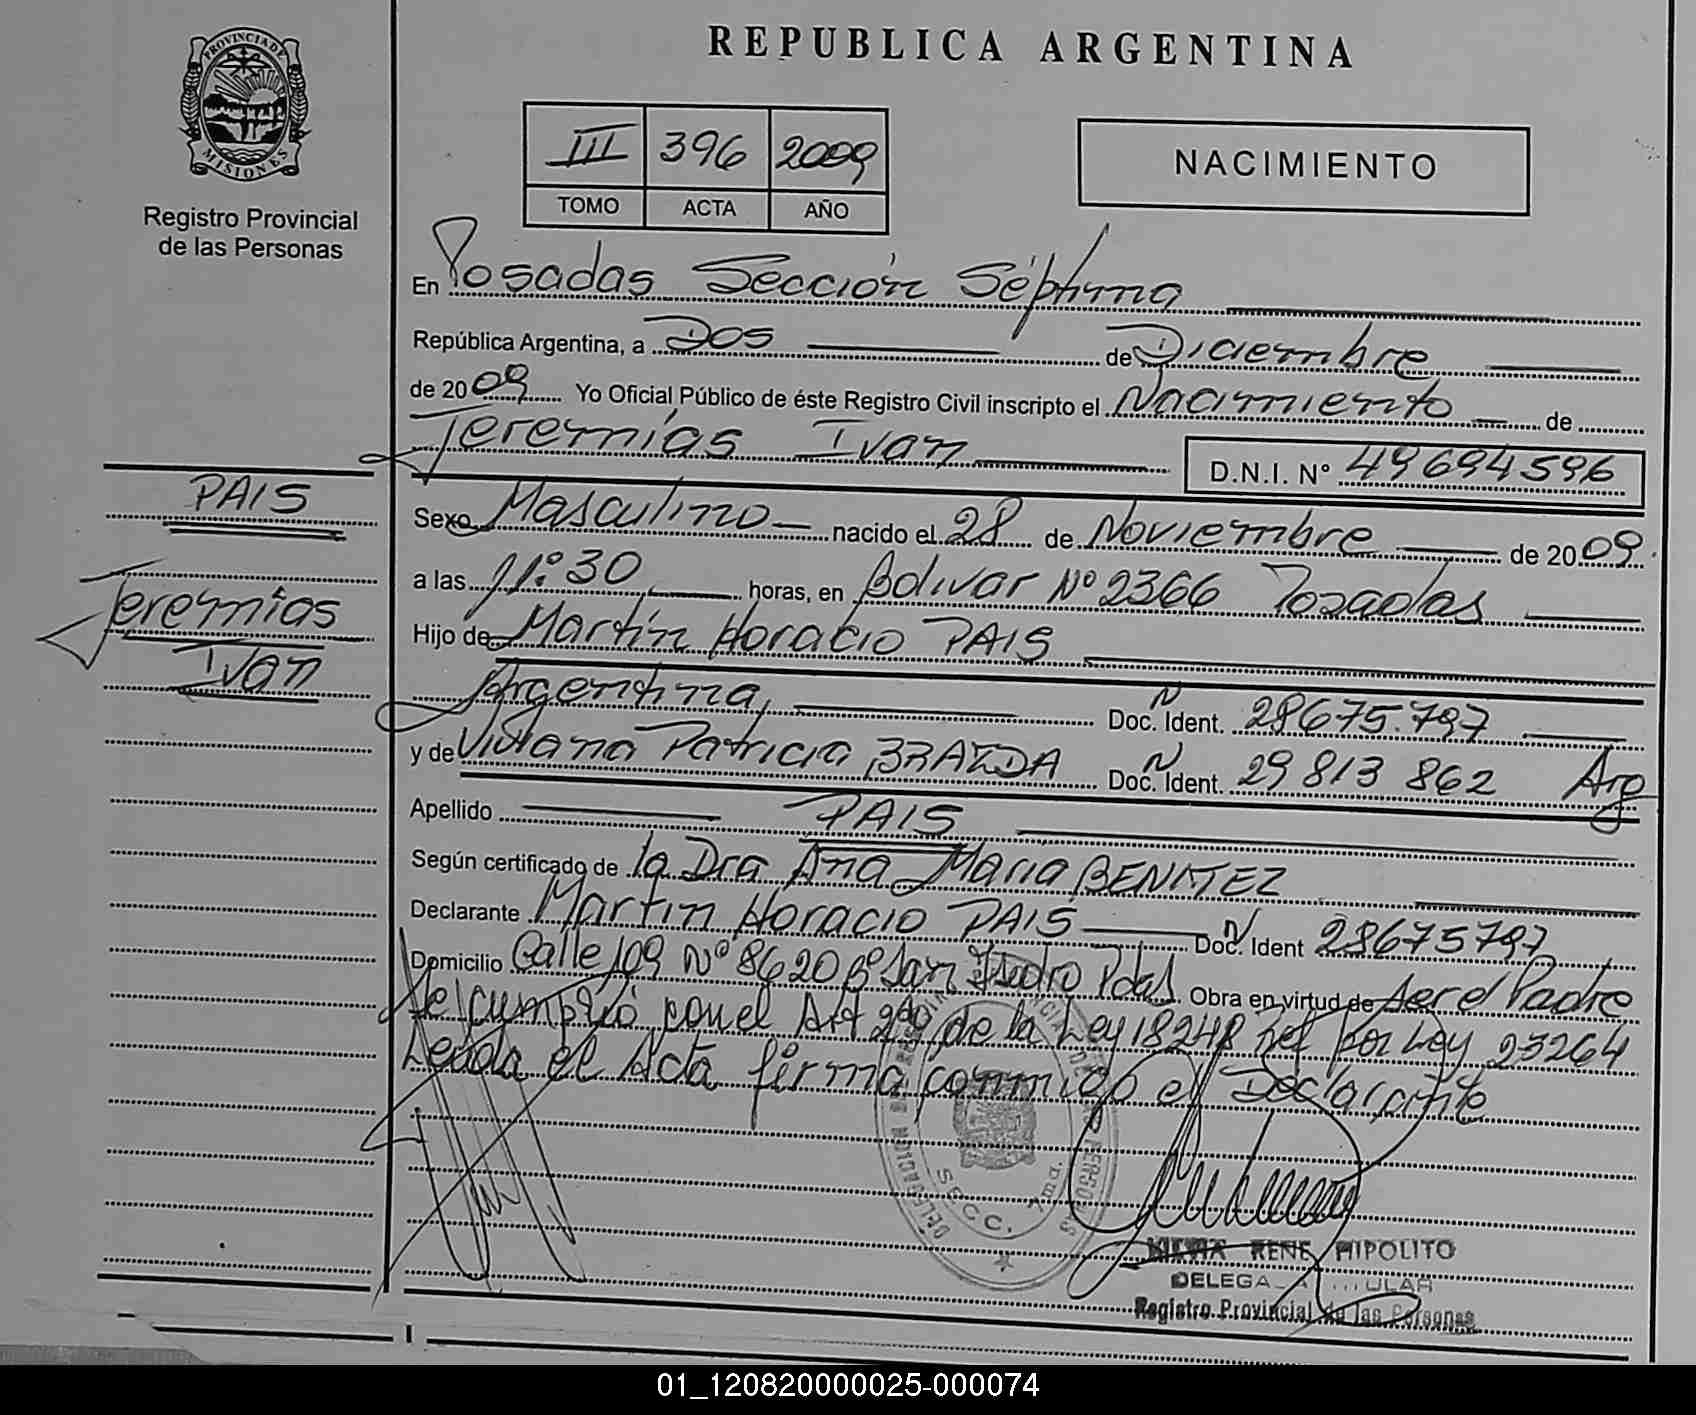 REPUBLICA ARGENTINA
PROVINCIA DE
MISIONES
Registro Provincial
de las Personas
III 396 2009
TOMO ACTA AÑO
NACIMIENTO
En Posadas Sección Séptima
República Argentina, a Dos de Diciembre
de 2009 Yo Oficial Público de éste Registro Civil inscripto el Nacimiento de
Jeremías Ivan D.N.I. N° 49694596
PAIS
Jeremías
Ivan
Sexo Masculino nacido el 28 de Noviembre de 2009.
a las 11:30 horas, en Bolivar Nº 2366 Posadas
Hijo de Martín Horacio PAIS
Argentina, Doc. N Ident. 28675.797
y de Viviana Patricia Doc. N Ident. 29 813 862 Arg
Apellido PAIS
Según certificado de la Dra Ana María BENITEZ
Declarante Martín Horacio PAIS Doc. N Ident 28675797
Domicilio Calle 109 Nº 8620 Bº San Isidro Pdas. Obra en virtud de ser el Padre
Se cumplió con el Art 2do de la Ley 18248 por Ley 23264
Leida el Acta firma conmigo el Declarante
DELEGACION
SECC. 7ma.
RENE HIPOLITO
Registro Provincial de las Personas
01_120820000025-000074